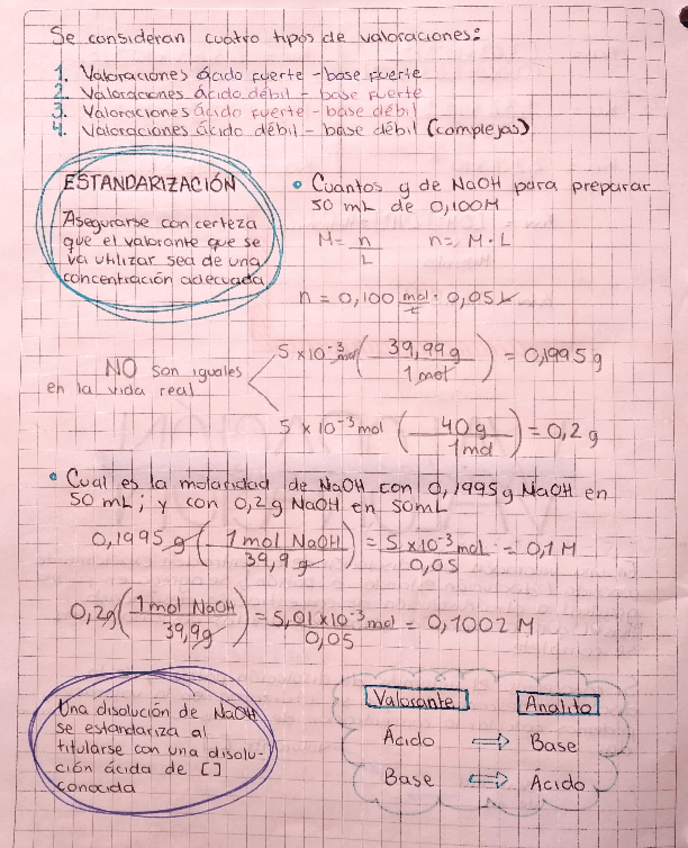 Se consideran cuatro tipos de valoraciones:
1. Valoraciones ácido fuerte - base fuerte
2. Valoraciones ácido débil - base fuerte
3. Valoraciones ácido fuerte - base débil
4. Valoraciones ácido débil - base débil (complejas)
ESTANDARIZACIÓN
Asegurarse con certeza
que el valorante que se
va utilizar sea de una
concentración adecuada
• Cuantos g de NaOH para preparar
50 mL de 0,100M
M = n/L n = M · L
n = 0,100 mol/L · 0,05 L
NO son iguales
en la vida real
5 x 10⁻³ mol (39,99 g / 1 mol) = 0,1995 g
5 x 10⁻³ mol (40 g / 1 mol) = 0,2 g
• Cual es la molaridad de NaOH con 0,1995 g NaOH en
50 mL; y con 0,2 g NaOH en 50mL
0,1995 g (1 mol NaOH / 39,9 g) = 5 x 10⁻³ mol / 0,05 = 0,1 M
0,2g (1 mol NaOH / 39,9g) = 5,01 x 10⁻³ mol / 0,05 = 0,1002 M
Una disolución de NaOH
se estandariza al
titularse con una disolu-
ción ácida de []
conocida
Valorante Analito
Ácido ⇒ Base
Base ⇔ Ácido